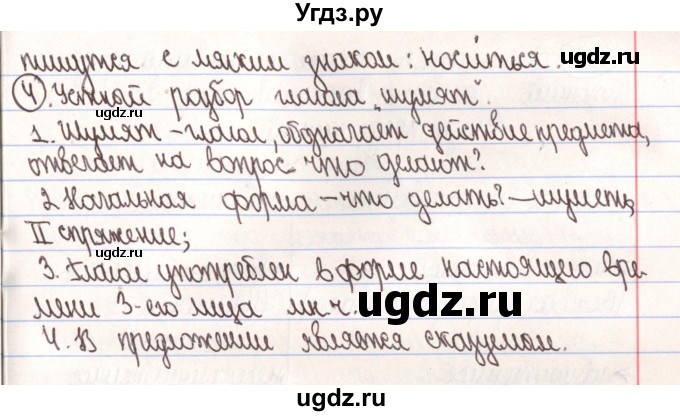 Угдз.ру
пишутся с мягким знаком: носиться.
4. Устный разбор глагола „шумят".
1. Шумят – глагол, обозначает действие предмета,
отвечает на вопрос что делают?
2. Начальная форма – что делать? – шуметь,
II спряжение;
3. Глагол употреблен в форме настоящего вре-
мени 3-его лица мн.ч.
4. В предложении является сказуемым.
ugdz.ru
ugdz.ru
ugdz.ru
ugdz.ru
ugdz.ru
ugdz.ru
ugdz.ru